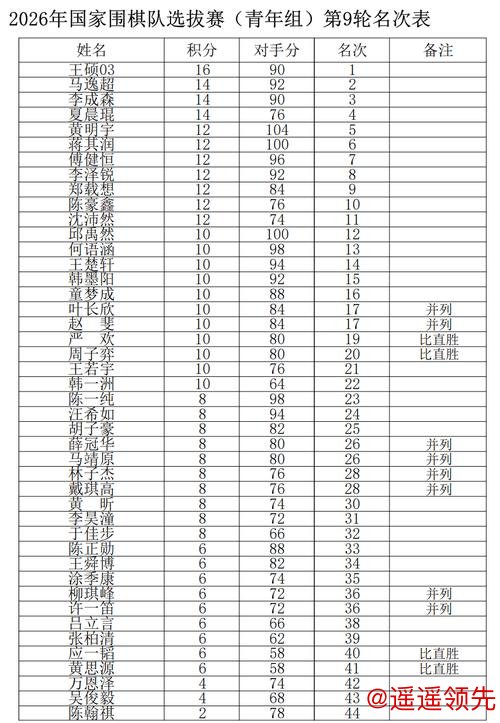 2026年国家围棋队选拔赛（青年组）第9轮名次表
姓名 积分 对手分 名次 备注
王硕03 16 90 1
马逸超 14 92 2
李成森 14 90 3
夏晨琨 14 76 4
黄明宇 12 104 5
蒋其润 12 100 6
傅健恒 12 96 7
李泽锐 12 92 8
郑载想 12 84 9
陈豪鑫 12 76 10
沈沛然 12 74 11
邱禹然 10 100 12
何语涵 10 98 13
王楚轩 10 94 14
韩墨阳 10 92 15
童梦成 10 88 16
叶长欣 10 84 17 并列
赵 斐 10 84 17 并列
严 欢 10 80 19 比直胜
周子弈 10 80 20 比直胜
王若宇 10 76 21
韩一洲 10 64 22
陈一纯 8 98 23
汪希如 8 94 24
胡子豪 8 82 25
薛冠华 8 80 26 并列
马靖原 8 80 26 并列
林子杰 8 76 28 并列
戴琪高 8 76 28 并列
黄 昕 8 74 30
李昊潼 8 72 31
于佳步 8 66 32
陈正勋 6 88 33
王舜博 6 82 34
涂季康 6 74 35
柳琪峰 6 72 36 并列
许一笛 6 72 36 并列
吕立言 6 66 38
张柏清 6 62 39
应一韬 6 58 40 比直胜
黄思源 6 58 41 比直胜
万恩泽 4 74 42
吴俊毅 4 68 43
陈翰祺 2 78 44
@遥遥领先